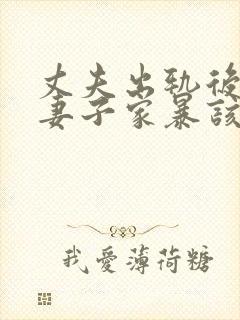 丈夫出轨後
妻子家暴該
我愛薄荷糖